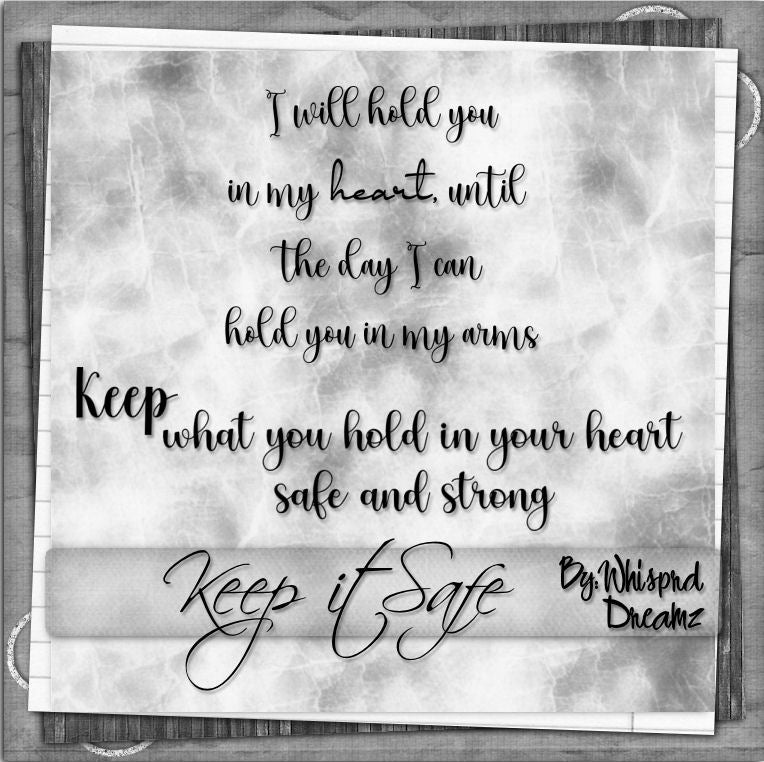 I will hold you
in my heart, until
the day I can
hold you in my arms
Keep
what you hold in your heart
safe and strong
Keep it Safe
By:Whisprd
Dreamz